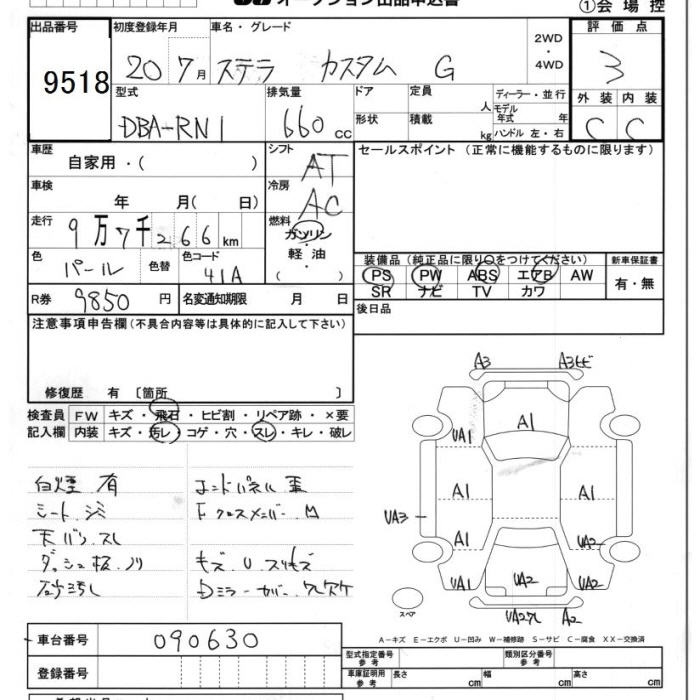 オークション出品申込書
①会場控
出品番号 初度登録年月 車名・グレード 2WD・4WD 評価点
9518 20 7月 ステラ カスタム G 3
型式 排気量 ドア 定員 人 ディーラー・並行 外装 内装
DBA-RN1 660cc 形状 積載 kg モデル年式 年 ハンドル 左・右 C C
車歴 自家用・( ) シフト AT セールスポイント(正常に機能するものに限ります)
車検 年 月( 日) 冷房 AC
走行 9万7千266km 燃料 ガソリン 軽油 ( )
色 パール 色替 色コード 41A
装備品(純正品に限り○をつけてください) 新車保証書
PS PW ABS エアB AW 有・無
SR ナビ TV カワ
R券 9850円 名変通知期限 月 日 後日品
注意事項申告欄(不具合内容等は具体的に記入して下さい)
修復歴 有 〔箇所 〕
検査員 FW キズ・飛石・ヒビ割・リペア跡・×要
記入欄 内装 キズ・汚レ・コゲ・穴・スレ・キレ・破レ
白煙.有
シート.シミ
天バリ.スレ
ダッシュ板.ノリ
コンドパネル 重
F クロスメンバー.M
キズ.U.スリキズ
Dミラーカバー.ワレアケ
A3 A3ヒビ
A1
UA1
A1 A1
UA3
A1 UA2
UA1 UA2 UA2
UA2ワレ A2
スペア
A－キズ E－エクボ U－凹み W－補修跡 S－サビ C－腐食 XX－交換済
車台番号 090630
登録番号
型式指定番号 参考 類別区分番号 参考
車庫証明用 参考 長さ cm 幅 cm 高さ cm